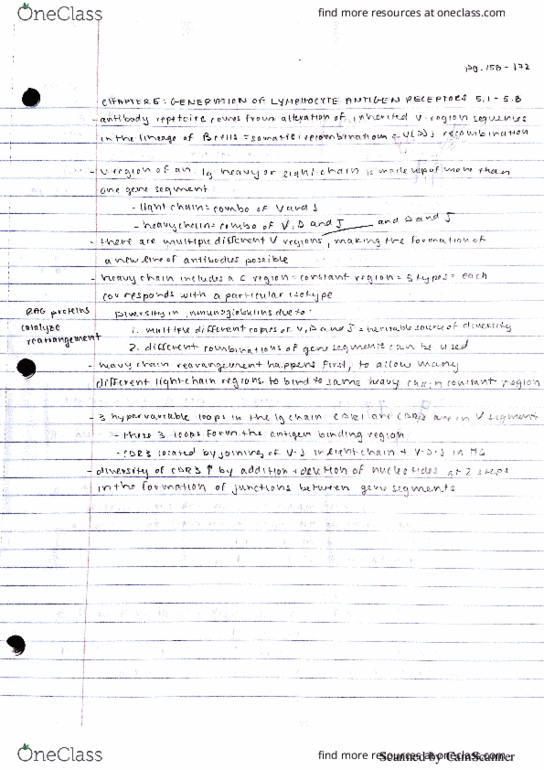 OneClass
find more resources at oneclass.com
pg. 158 - 172
CHAPTER 5: GENERATION OF LYMPHOCYTE ANTIGEN RECEPTORS 5.1 - 5.8
- antibody repetoire comes from alteration of inherited V-region sequences
in the lineage of B cells = somatic recombination = V(D)J recombination
- V-region of an Ig heavy or light chain is made up of more than
one gene segment:
- light chain = combo of V and J
- heavy chain = combo of V, D and J and D and J
- there are multiple different V regions, making the formation of
a new line of antibodies possible
- heavy chain includes a C region = constant region = 5 types = each
corresponds with a particular isotype
RAG proteins
catalyze
rearrangement
Diversity in immunoglobulins due to:
1. multiple different copies of V, D and J = heritable source of diversity
2. different combinations of gene segments can be used
- heavy chain rearrangement happens first, to allow many
different light chain regions to bind to same heavy chain constant region
- 3 hypervariable loops in the Ig chain CDR1 and CDR2 are in V segment
- these 3 loops form the antigen binding region
- CDR3 located by joining of V-J in light chain + V-D-J in HC
- diversity of CDR3 ↑ by addition + deletion of nucleotides at 2 steps
in the formation of junctions between gene segments
OneClass
find more resources at oneclass.com
Scanned by CamScanner